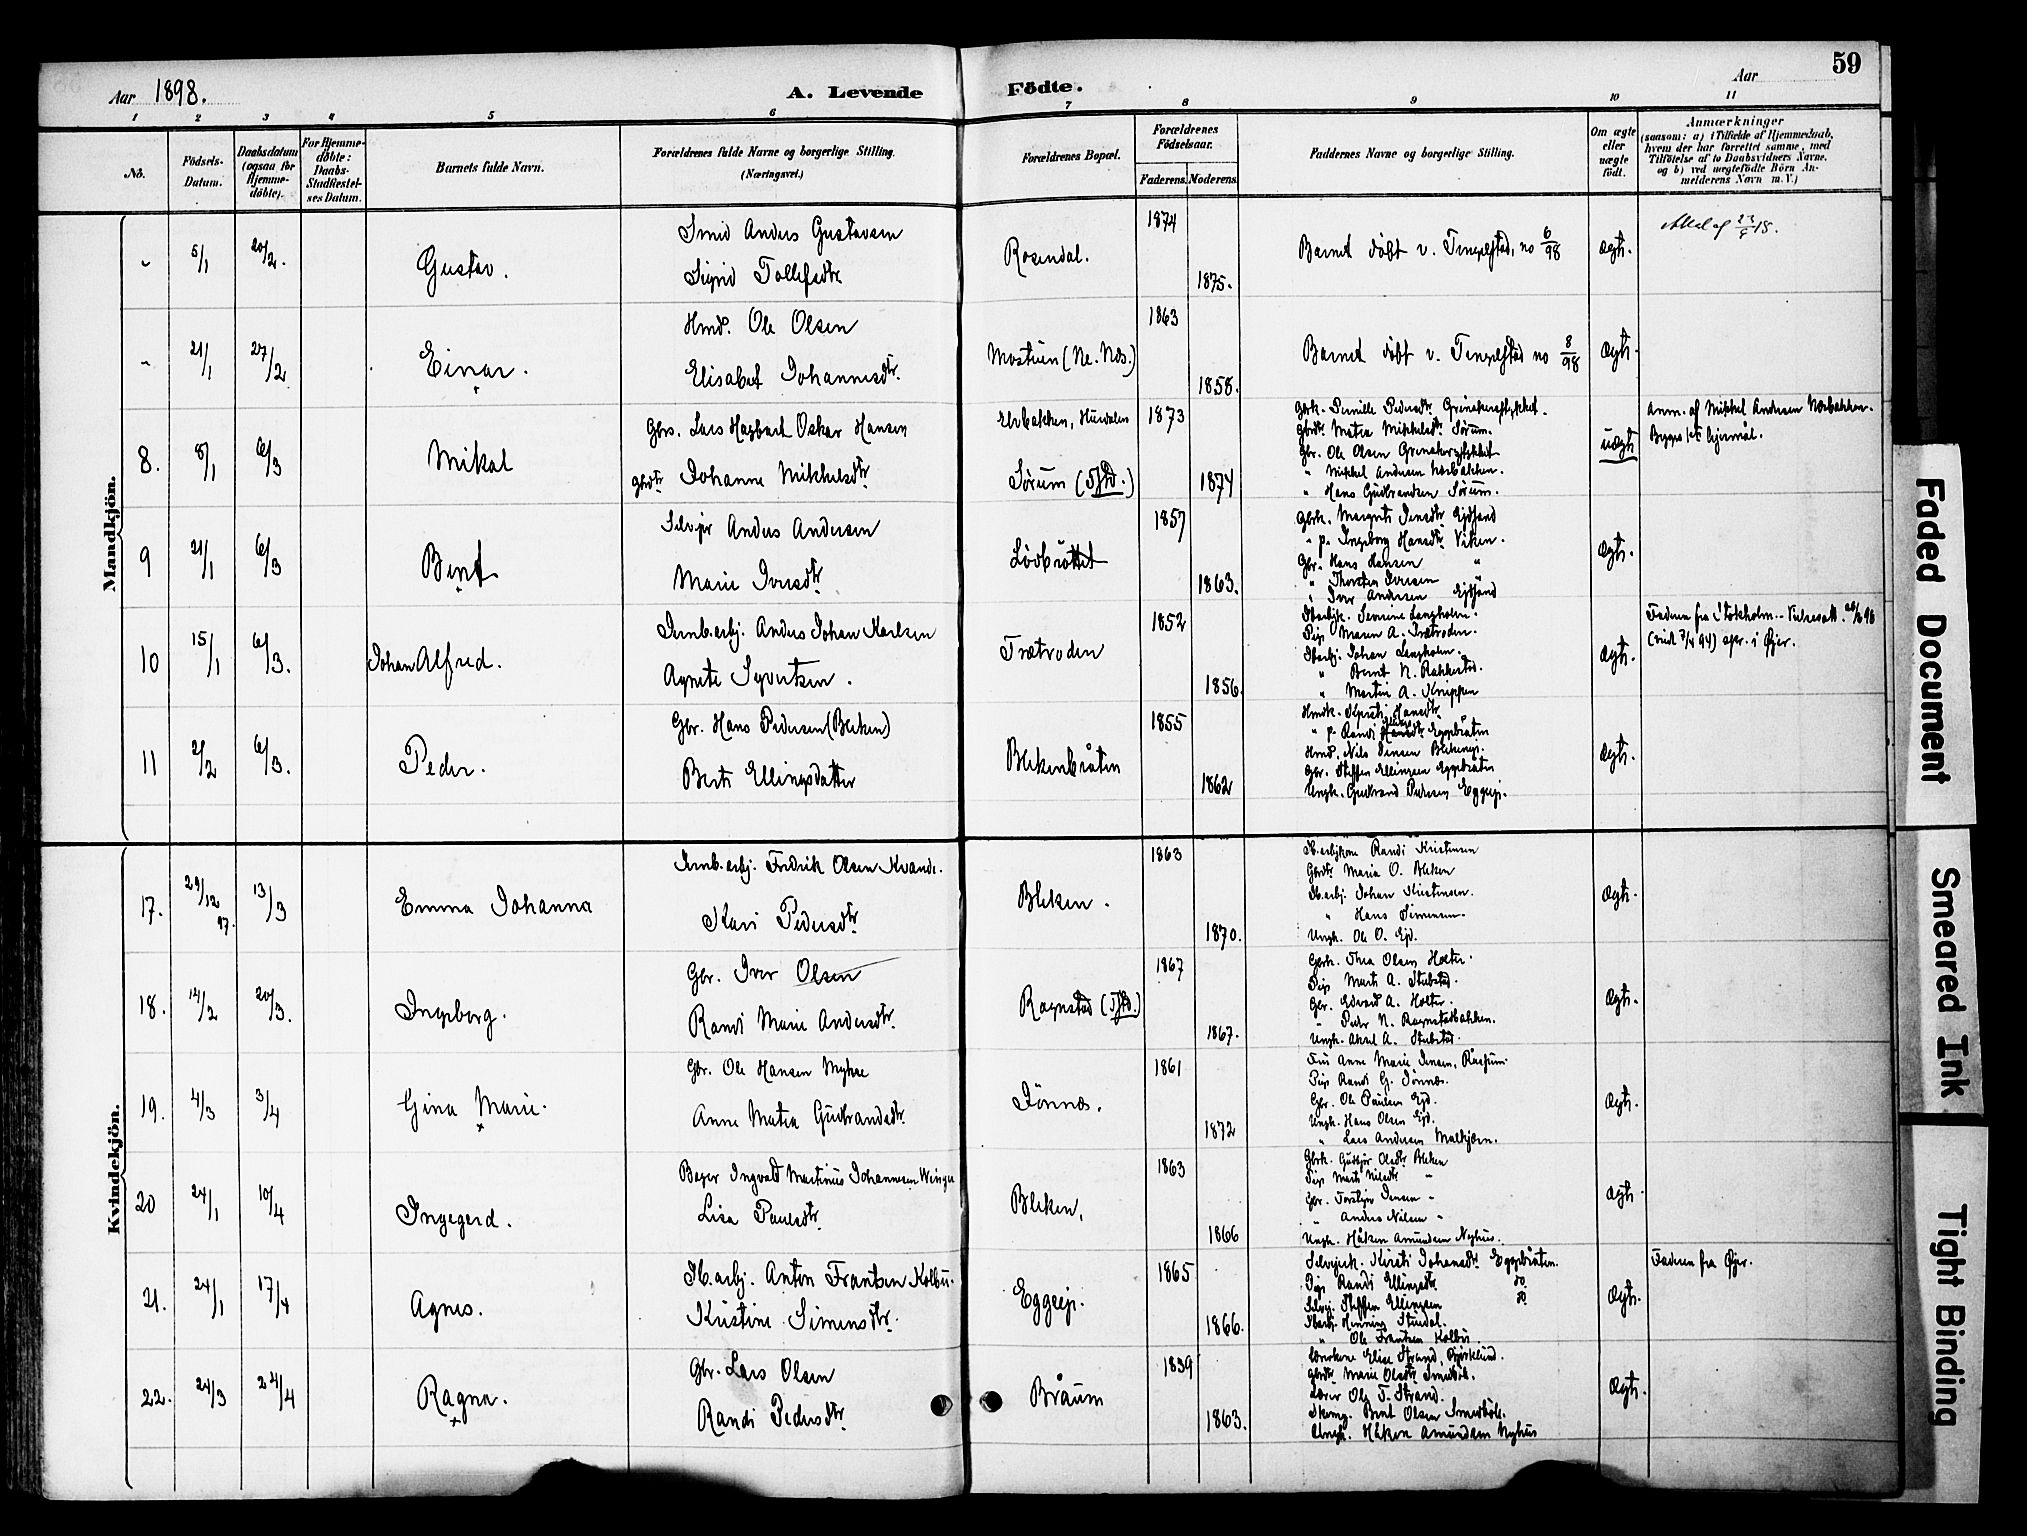 59
Aar 1898.
A. Levende Födte.
Aar
1 2 3 4 5 6 7 8 9 10 11
No.
Födsels-Datum.
Daabsdatum (ogsaa för Hjemme-döbte).
For Hjemme-döbte: Daabs-Stadfæstel-ses Datum.
Barnets fulde Navn.
Forældrenes fulde Navne og borgerlige Stilling. (Næringsvei.)
Forældrenes Bopæl.
Forældrenes Födselsaar.
Faderens. Moderens.
Faddernes Navne og borgerlige Stilling.
Om ægte eller uægte födt.
Anmærkninger
(saasom: a) i Tilfælde af Hjemmedaab, hvem der har forrettet samme, med Tilföielse af to Daabsvidners Navne, og b) ved uægtefödte Börn An-melderens Navn m. V.)
Mandkjön.
5/1 20/2. Gustav.
Smed Anders Gustavsen
Sigrid Tollefsdtr
Rosendal.
1874
1875.
Barnet døbt v. Tingelstad, no 6/98
Ægte.
21/1 27/2 Einar.
Hmd. Ole Olsen
Elisabet Johannesdtr.
Mostuen (Ne. Næs.)
1863
1858.
Barnet døbt v. Tingelstad no 8/98
Ægte.
8. 8/1 6/3 Mikal
Gbrs. Lars Hagbart Oskar Hansen
gbrdtr Johanne Mikkelsdtr
Elvbakken, Hurdalen
Sørum
1873
1874
Gbrk. Pernille Pedersdtr. Grinakerstykket.
Gbrdtr. Matea Mikkelsdtr Sørum.
Gbr. Ole Olsen Grinakerstykket
" Mikkel Andersen Norbakken.
" Hans Gudbrandsen Sørum.
uægte
Anm. af Mikkel Andersen Norbakken.
9 21/1 6/3 Bent
Selvejer Anders Andersen
Marie Iversdtr.
Lødbråttet
1857
1863.
Gbrk. Margrete Jensdtr Ejdsand
" p. Ingeborg Hansdtr. Viken.
Gbr. Hans Hansen "
" Thorsten Iversen
" Iver Andersen Ejdsand
Ægte.
10 15/1 6/3. Johan Alfred.
Jernb.arbj. Anders Johan Karlsen
Agnete Syvertsen.
Trætroden
1852
1856.
Jbarbjk. Severine Langholm.
Pige Maren A. Trætroden.
Jbarbj. Johan Langholm.
" Bernt N. Rakkestad.
" Martin A. Knuppen
Ægte.
Faderen fra Stokholm.
11 2/2 6/3. Peder.
Gbr. Hans Pedersen (Bleken)
Berte Ellingsdatter
Blekenbråten
1855
1862
Hmdk. Kjersti Hansdtr.
" p. Randi Eggebråten
Hmd. Nils Jensen Blekenej.
Gbr. Steffen Ellingsen Eggebråten
Ungk. Gudbrand Pedersen Eggeej.
Ægte.
Kvindekjön.
17. 29/12 97. 13/3 Emma Johanna
Jernb.arbj. Fredrik Olsen Kvande.
Kari Pedersdtr.
Bleken.
1863
1870.
Jb.arbjkone Randi Kristensen
Gbrdtr Maria O. Bleken
Jb.arbj. Johan Kristensen.
" Hans Simensen.
Ungk. Ole O. Ejd.
Ægte.
18. 14/2 20/3. Ingeborg.
Gbr. Iver Olsen
Randi Marie Andersdtr.
Rognstad
1867
1867.
Gbrk. Thea Olsen Holter.
Pige Marte A. Stubstad.
Gbr. Edvard A. Holter.
" Peder N. Rognstadbakken.
Ungk. Aksel A. Stubstad.
Ægte.
19. 4/3 3/4 Gina Marie.
Gbr. Ole Hansen Myhre
Anne Matea Gudbrandsdtr.
Tønnes.
1861
1872
Fru Anne Marie Jensen, Råssum.
Pige Randi G. Tønnes.
Gbr. Ole Paulsen Ejd.
Ungk. Hans Olsen Ejd.
" Lars Andersen Malkjærn.
Ægte.
20 24/1 10/4 Ingegerd.
Bager Ingvald Martinius Johannesen Wenger
Lisa Paulsdtr.
Bleken.
1863
1866
Gbrk. Gudbjør Olsdtr Bleken
Pige Marte Nilsdtr "
Gbr. Torstein Jensen "
" Anders Nilsen "
Ungk. Håken Amundsen Nyhus.
Ægte.
21. 24/1 17/4 Agnes.
Jb.arbj. Anton Frantsen Kolbu.
Kristine Simensdtr.
Eggeej.
1865
1866.
Selvejerk. Kirsti Johansdtr. Eggebråten.
Pige Randi Ellingsdtr do
Selvej. Steffen Ellingsen do
Jbarbj. Henning Stuedal.
" Ole Frantsen Kolbu.
Ægte.
Faderen fra Øjer.
22. 24/3 24/4 Ragna.
Gbr. Lars Olsen
Randi Pedersdtr.
Bråum
1839
1863.
Lærerkone Elise Strand, Bjørklund.
Gbrdtr. Marie Olsdtr. Smedbøl.
Lærer Ole T. Strand.
Skomg. Bent Olsen Smedbøl.
Ungk. Håken Amundsen Nyhus
Ægte.
Faded Document
Smeared Ink
Tight Binding